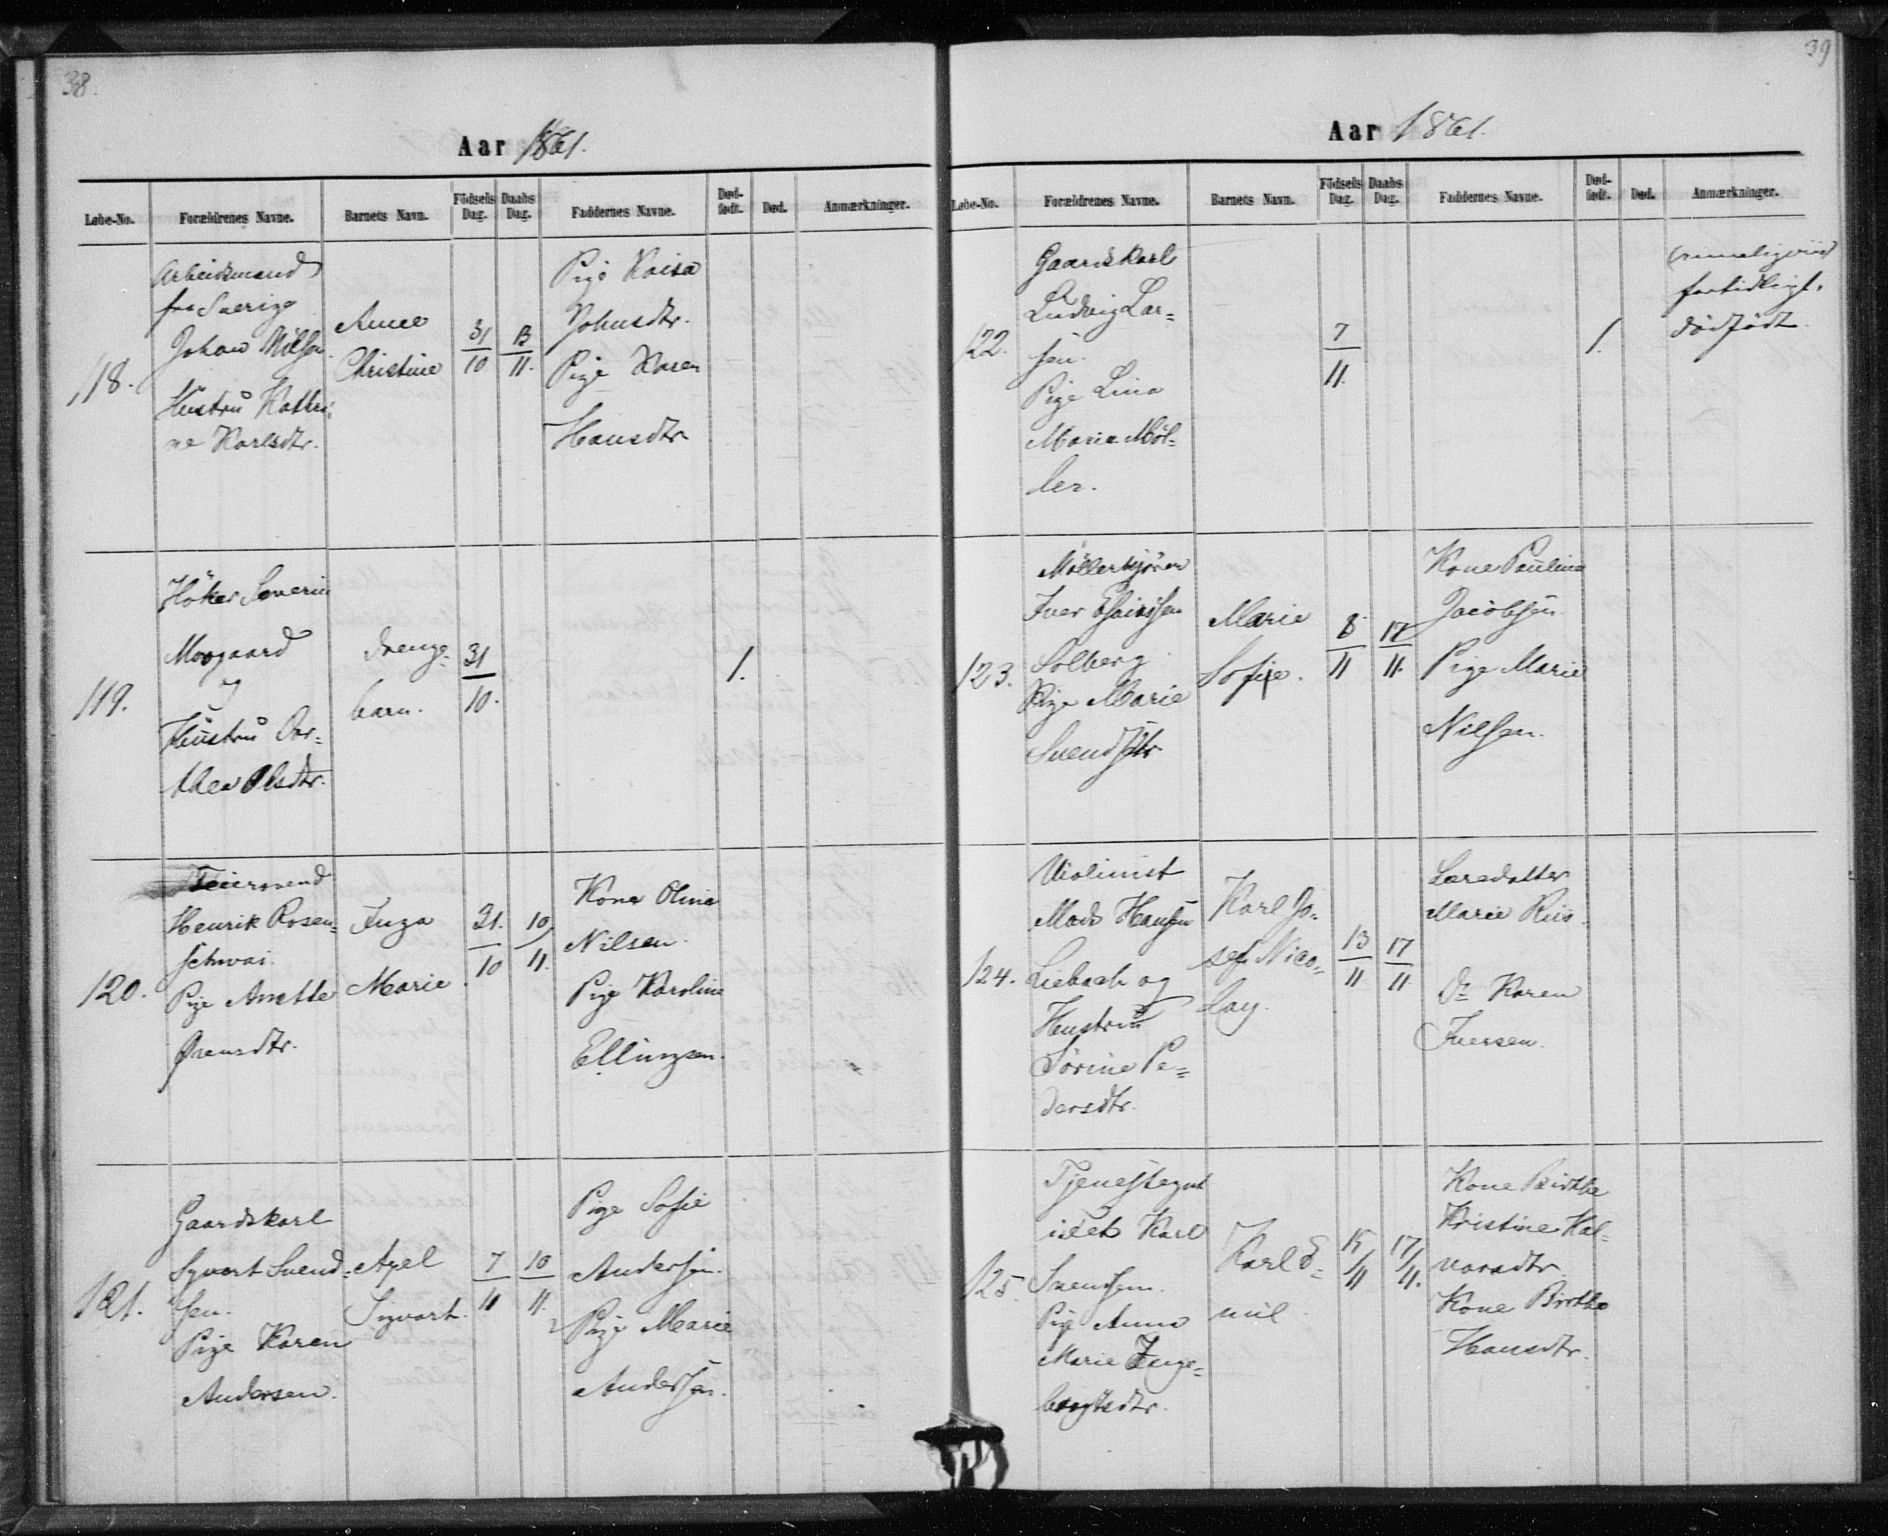 38.
Aar 1861.
Løbe-No. Forældrenes Navne. Barnets Navn. Födsels Dag. Daabs Dag. Faddernes Navne. Død-født. Død. Anmærkninger.
118.
Arbeidsmand
fra Sverige
Johan Nilsen.
Hustru Kathri-
ne Karlsdtr.
Anne
Christine
31/10
13/11.
Pige Kaisa
Johnsdtr.
Pige Karen
Hansdtr
119.
Höker Severin
Moogaard
og
Hustru Dor-
thea Olsdtr.
Drenge-
barn.
31/10.
1.
120.
Feiersvend
Henrik Rosen-
schwai.
Pige Anette
Örensdtr.
Inga
Marie.
21./10
10/11.
Kone Olina
Nilsen.
Pige Karoline
Ellingsen.
121.
Gaardskarl
Syvert Svend-
sen.
Pige Karen
Andersen.
Axel
Syvart.
7/11
10/11.
Pige Sofie
Andersen.
Pige Marie
Andersen.
39
Aar 1861.
Løbe-No. Forældrenes Navne. Barnets Navn. Födsels Dag. Daabs Dag. Faddernes Navne. Død-født. Død. Anmærkninger.
122.
Gaardskarl
Ludvig Lar=
sen.
Pige Lina
Maria Möl=
ler.
7/11.
1.
fortidligt.
dødfödt.
123.
Möllerhjören
Iver
Solberg.
Pige Marie
Svendsdtr
Marie
Sofie.
8/11
17/11.
Kone Pauline
Jacobsen
Pige Marie
Nilsen.
124.
Violinist
Mads Hansen
Liebach og
Hustru
Sörine Pe=
dersdtr.
Karl Jo-
sef Nico-
lay.
13/11
17/11.
Marie Riis.
Dr Karen
Iversen.
125.
Tjenestegut
Karl
Svendsen.
Pige Anna
Marie Inge-
borgtsdtr.
Karl E-
mil
15/11
17/11.
Kone Birthe
Kristine Hal-
vorsdtr.
Kone Birthe
Hansdtr.